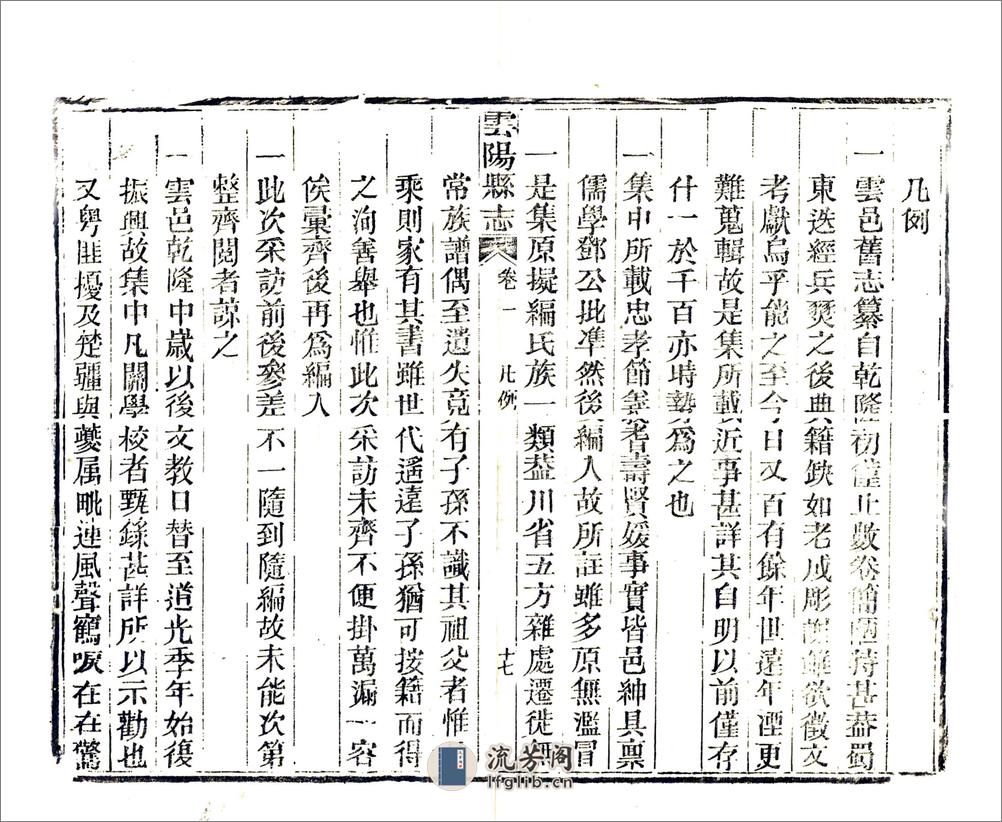 凡例
一雲邑舊志纂自乾隆初僅止數卷簡陋特甚葢蜀
東迭經兵燹之後典籍缺如老成彫謝雖欲徵文
考獻烏乎能之至今日又百有餘年世遠年湮更
難蒐輯故是集所載近事甚詳其自明以前僅存
什一於千百亦時勢爲之也
一集中所載忠孝節義耆壽賢媛事實皆邑紳具禀
儒學鄧公批準然後編入故所註雖多原無濫冒
一是集原擬編氏族一類葢川省五方雜處遷徙無
雲陽縣志 卷一 凡例 十七
常族譜偶至遺失竟有子孫不識其祖父者惟
乘則家有其書雖世代遙遠子孫猶可按籍而得
之洵善舉也惟此次采訪未齊不便掛萬漏一容
俟彙齊後再爲編入
一此次采訪前後參差不一隨到隨編故未能次第
整齊閱者諒之
一雲邑乾隆中歲以後文教日替至道光季年始復
振興故集中凡關學校者甄錄甚詳所以示勸也
又粵匪擾及楚疆與夔属毗連風聲鶴唳在在驚
流芳阁
lfglib.cn